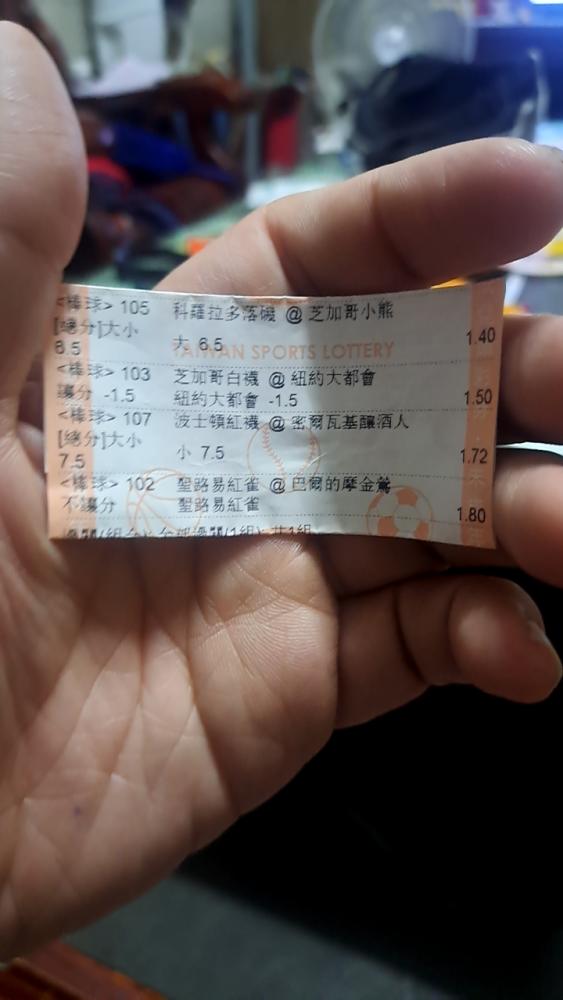 <棒球> 105 科羅拉多落磯 @ 芝加哥小熊
[總分]大小
6.5 大 6.5 1.40
TAIWAN SPORTS LOTTERY
<棒球> 103 芝加哥白襪 @ 紐約大都會
讓分 -1.5 紐約大都會 -1.5 1.50
<棒球> 107 波士頓紅襪 @ 密爾瓦基釀酒人
[總分]大小
7.5 小 7.5 1.72
<棒球> 102 聖路易紅雀 @ 巴爾的摩金鶯
不讓分 聖路易紅雀 1.80